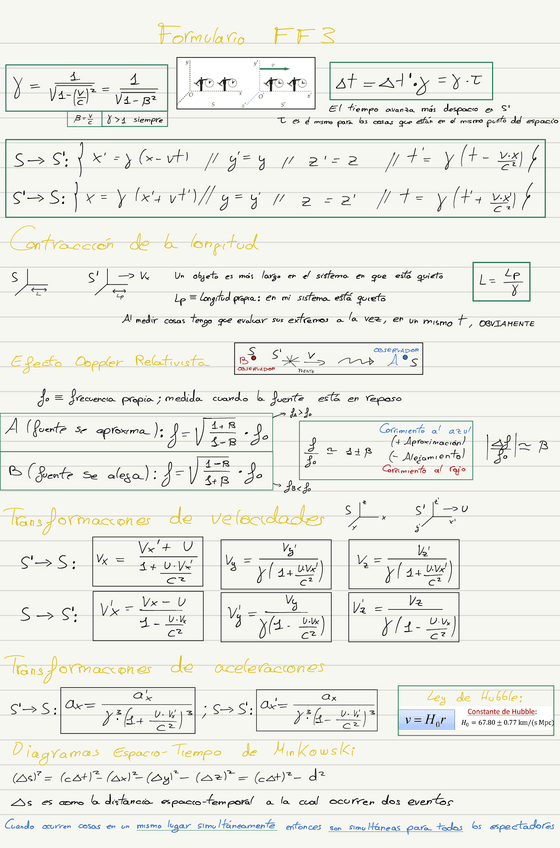 Formulario FF3
γ = 1/√(1-(v/c)²) = 1/√(1-β²)
β = v/c
γ > 1 siempre
Δt = Δt'·γ = γ·τ
El tiempo avanza más despacio es S'
τ es el mismo para las cosas que están en el mismo punto del espacio
S → S': { x' = γ(x - vt) // y' = y // z' = z // t' = γ(t - v·x/c²) }
S' → S: { x = γ(x' + vt') // y = y' // z = z' // t = γ(t' + v·x'/c²) }
Contracción de la longitud
S L S' → Vx Lp
Un objeto es más largo en el sistema en que está quieto
Lp ≡ Longitud propia: en mi sistema está quieto
L = Lp/γ
Al medir cosas tengo que evaluar sus extremos a la vez, en un mismo t, OBVIAMENTE
Efecto Doppler Relativista
S B OBSERVADOR S' V Fuente OBSERVADOR A S
f₀ ≡ frecuencia propia; medida cuando la fuente está en reposo
A (fuente se aproxima): f = √((1+β)/(1-β)) · f₀
→ fA > f₀
B (fuente se aleja): f = √((1-β)/(1+β)) · f₀
→ fB < f₀
f/f₀ ≃ 1 ± β
Corrimiento al azul
(+ Aproximación)
(- Alejamiento)
Corrimiento al rojo
|Δf/f₀| ≃ β
Transformaciones de velocidades
S x y z S' x' y' z' → U
S' → S: Vx = (Vx' + U)/(1 + U·Vx'/c²) Vy = Vy'/(γ(1 + U·Vx'/c²)) Vz = Vz'/(γ(1 + U·Vx'/c²))
S → S': V'x = (Vx - U)/(1 - U·Vx/c²) Vy' = Vy/(γ(1 - U·Vx/c²)) Vz' = Vz/(γ(1 - U·Vx/c²))
Transformaciones de aceleraciones
S' → S: ax = a'x/(γ³·(1 + U·Vx'/c²)³) ; S → S': a'x = ax/(γ³·(1 - U·Vx/c²)³)
Ley de Hubble:
v = H₀r
Constante de Hubble:
H₀ = 67.80 ± 0.77 km/(s Mpc)
Diagramas Espacio-Tiempo de Minkowski
(Δs)² = (cΔt)² - (Δx)² - (Δy)² - (Δz)² = (cΔt)² - d²
Δs es como la distancia espacio-temporal a la cual ocurren dos eventos
Cuando ocurren cosas en un mismo lugar simultáneamente entonces son simultáneas para todos los espectadores